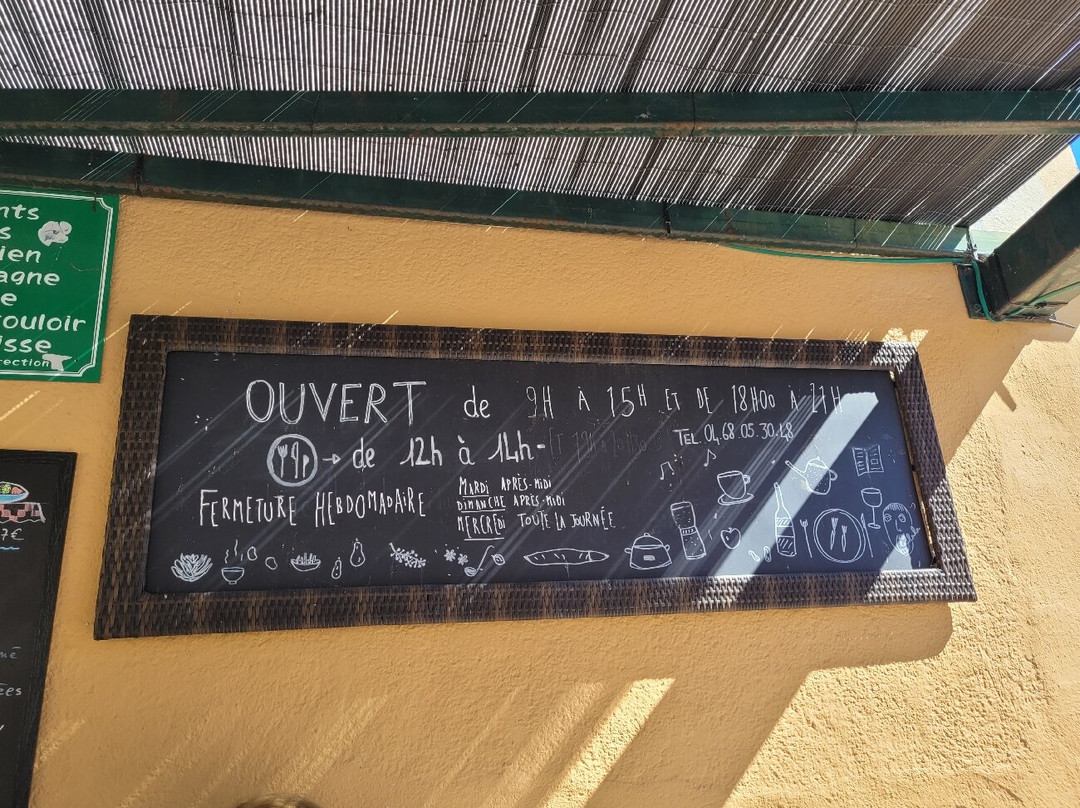 nts
s
ien
agne
e
ouloir
isse
rection
7€
OUVERT de 9H À 15H ET DE 18H00 À 21H
→ de 12h à 14h-
TEL. 04.68.05.30.48
FERMETURE HEBDOMADAIRE
MARDI APRÈS-MIDI
DIMANCHE APRÈS-MIDI
MERCREDI TOUTE LA JOURNÉE